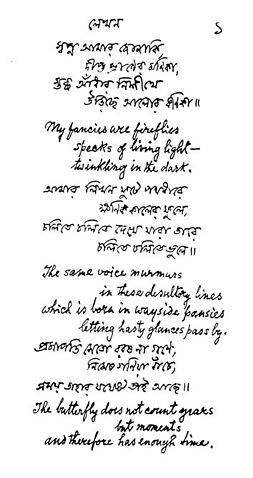 লেখন ১
স্বপ্ন আমার জোনাকি
দীপ্ত প্রাণের মণিকা,
স্তব্ধ আঁধার নিশীথে
উড়িছে আলোর কণিকা॥
My fancies are fireflies
specks of living light—
twinkling in the dark.
আমার লিখন ফুটে পথধারে
ক্ষণিক কালের ফুলে,
চলিতে চলিতে দেখে যারা তারে
চলিতে চলিতে ভুলে॥
The same voice murmurs
in these desultory lines
which is born in wayside pansies
letting hasty glances pass by.
প্রজাপতি সেতো বরষ না গণে,
নিমেষ গণিয়া বাঁচে,
সময় তাহার যথেষ্ট তাই আছে॥
The butterfly does not count years
but moments
and therefore has enough time.